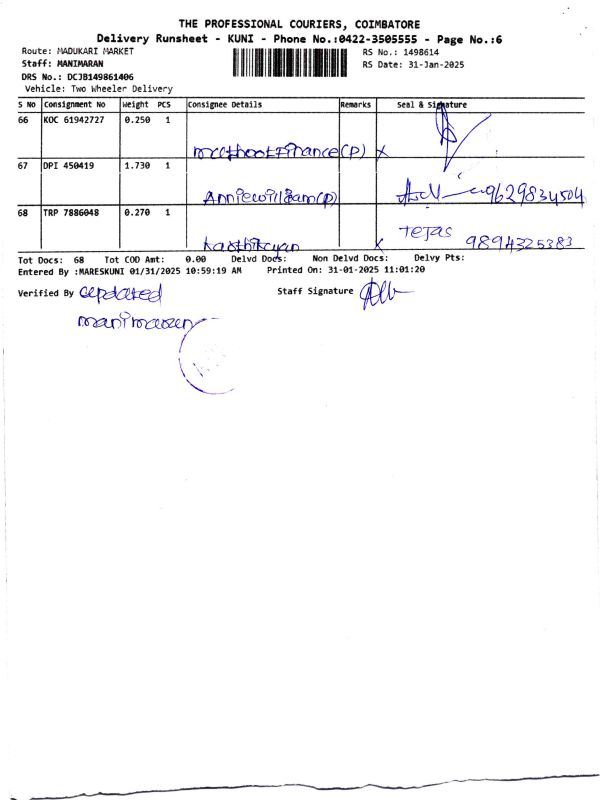 THE PROFESSIONAL COURIERS, COIMBATORE
Delivery Runsheet - KUNI - Phone No.:0422-3505555 - Page No.:6
Route: MADUKARI MARKET
RS No.: 1498614
Staff: MANIMARAN
RS Date: 31-Jan-2025
DRS No.: DCJB149861406
Vehicle: Two Wheeler Delivery
S No Consignment No Weight PCS Consignee Details Remarks Seal & Signature
66 KOC 61942727 0.250 1
Muthoot Finance (P) x
67 DPI 450419 1.730 1
Annie william (p) 9629834504
68 TRP 7886048 0.270 1
Tejas
Karthikeyan x 9894325383
Tot Docs: 68 Tot COD Amt: 0.00 Delvd Docs: Non Delvd Docs: Delvy Pts:
Entered By :MARESKUNI 01/31/2025 10:59:19 AM Printed On: 31-01-2025 11:01:20
Verified By updated Staff Signature
manimaran